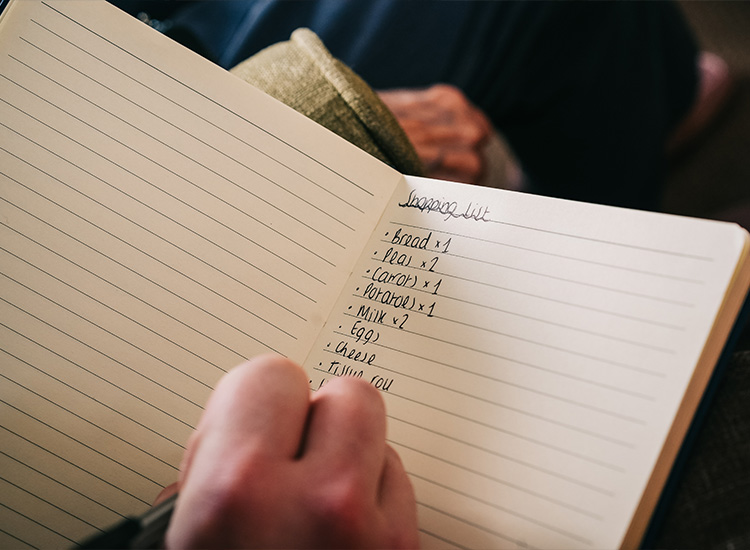 Shopping List
• Bread x 1
• Peas x 2
• Carrots x 1
• Potatoes x 1
• Milk x 2
• Eggs
• Cheese
• Tissue roll